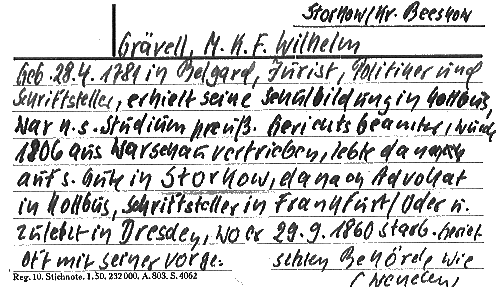 Storkow/Kr. Beeskow
Grävell, M. K. F. Wilhelm
Geb. 28.4. 1781 in Belgard, Jurist, Politiker und
Schriftsteller, erhielt seine Schulbildung in Kottbus,
war n. s. Studium preuß. Gerichtsbeamter, wurde
1806 aus Warschau vertrieben, lebte danach
auf s. Gute in Storkow, danach Advokat
in Kottbus, Schriftsteller in Frankfurt/Oder u.
zuletzt in Dresden, wo er 29.9.1860 starb. Geriet
oft mit seiner vorge- setzten Behörde wie
Reg. 10. Stichnote. I. 50. 232 000. A. 803. S. 4062